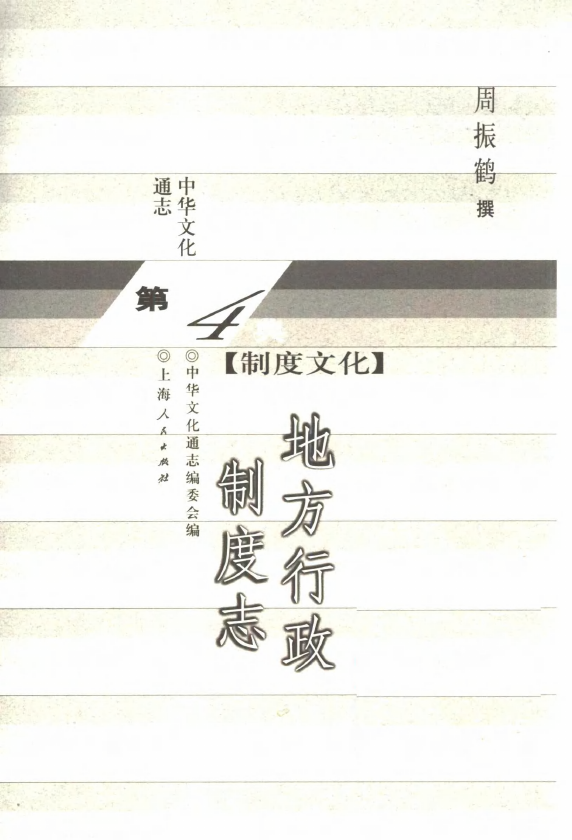 周振鹤 撰
中华文化
通志
第4
【制度文化】
地方行政
制度志
◎中华文化通志编委会编
◎上海人民出版社